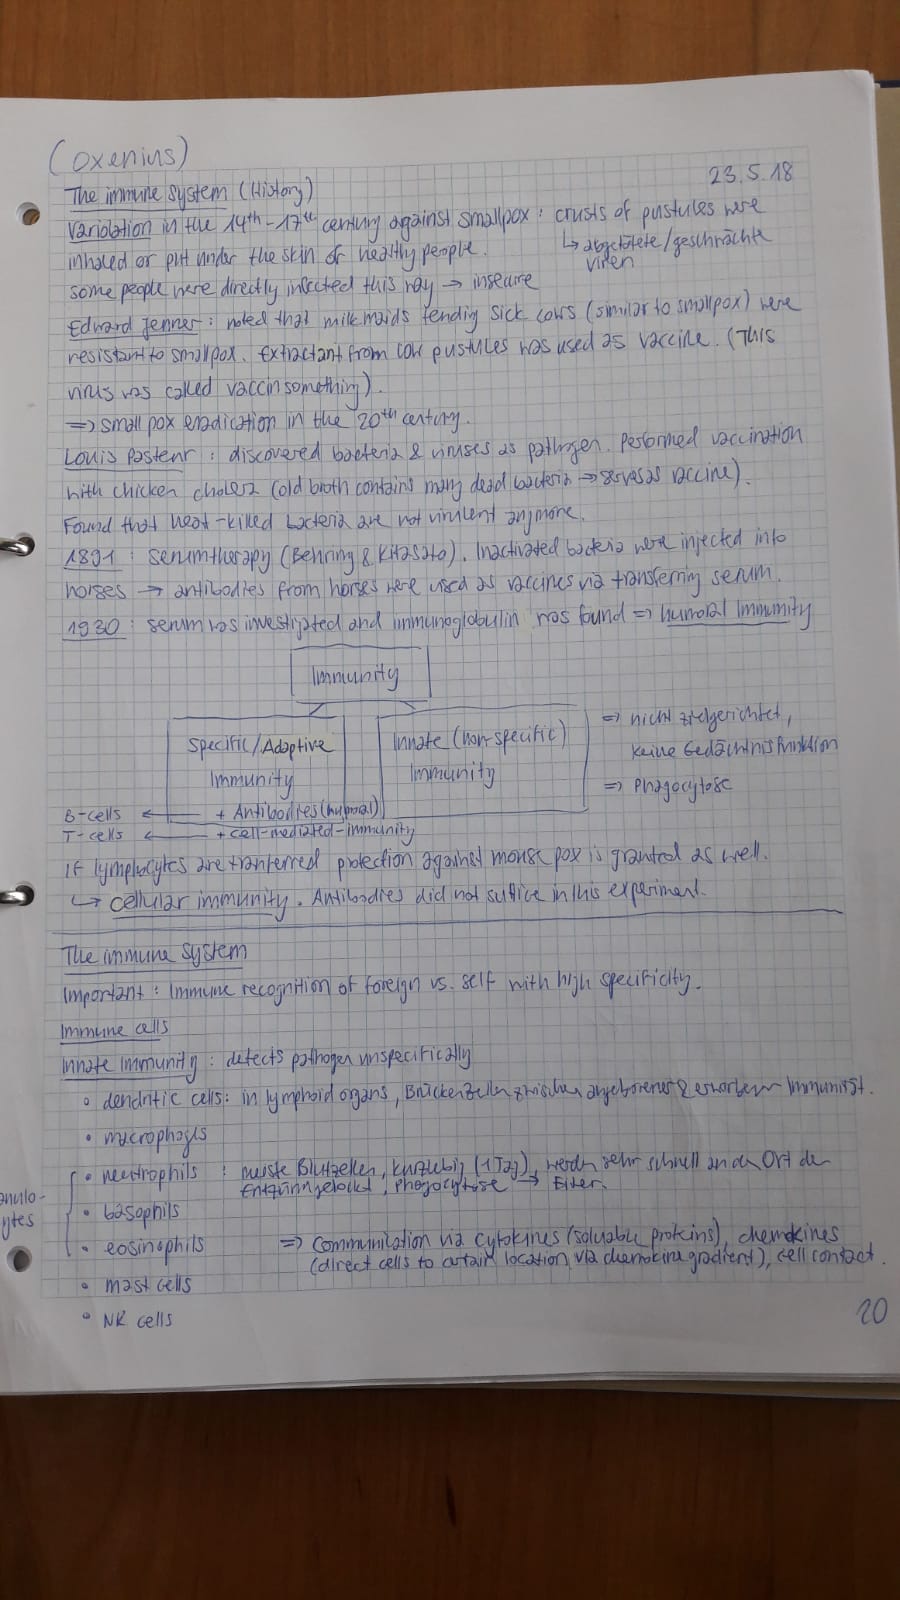 (Oxenius)
23.5.18
The immune system (History)
Variolation in the 14th-17th century against smallpox: crusts of pustules were
↳ abgetötete/geschwächte
Viren
inhaled or put under the skin of healthy people.
some people were directly infected this way → insecure
Edward Jenner: noted that milkmaids tending sick cows (similar to smallpox) were
resistant to smallpox. Extractant from cow pustules was used as vaccine. (This
virus was called vaccinsomething).
=> small pox eradication in the 20th century.
Louis Pasteur: discovered bacteria & viruses as pathogen. Performed vaccination
with chicken cholera (old broth contains many dead bacteria → serves as vaccine).
Found that heat-killed bacteria are not virulent anymore.
1891: serumtherapy (Behring & Kitasato). Inactivated bacteria were injected into
horses → antibodies from horses were used as vaccines via transferring serum.
1930: serum was investigated and immunoglobulin was found => humoral immunity
Immunity
Specific/Adaptive
Immunity
Innate (non-specific)
Immunity
=> nicht zielgerichtet,
keine Gedächtnisfunktion
=> Phagocytose
B-cells ← + Antibodies (humoral)
T-cells ← + cell-mediated-immunity
If lymphocytes are tranferred protection against mouse pox is granted as well.
↳ cellular immunity. Antibodies did not suffice in this experiment.
The immune system
Important: Immune recognition of foreign vs. self with high specificity.
Immune cells
Innate immunity: detects pathogen unspecifically
• dendritic cells: in lymphoid organs, Brückenzellen zwischen angeborener & erworbener Immunität.
• macrophags
• neutrophils : meiste Blutzellen, kurzlebig (1 Tag), werden sehr schnell an den Ort der
Entzündung gelockt, Phagocytose → Eiter.
anulo-
ytes
• basophils
• eosinophils
=> Communication via cytokines (soluable proteins), chemokines
(direct cells to certain location via chemokine gradient), cell contact.
• mast cells
• NK cells
20